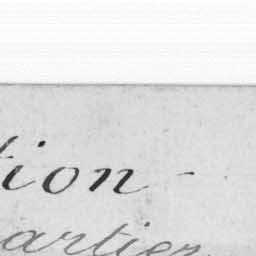 tion -
artier